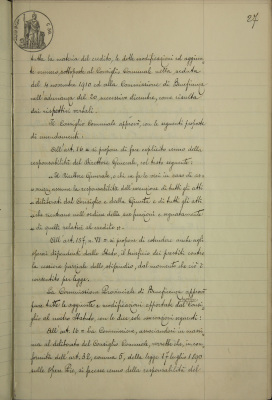 27
tutta la materia del credito, le dette modificazioni ed aggiun-
te vennero sottoposte al Consiglio Comunale nella seduta
del 4 novembre 1910 ed alla Commissione di Beneficenza
nell'adunanza del 20 successivo dicembre, come risulta
dai rispettivi verbali.
Il Consiglio Comunale approvò, con le seguenti proposte
di emendamenti:
All'art. 16 = si propone di fare esplicito cenno della
responsabilità del Direttore Generale, nel testo seguente:
"Il Direttore Generale, o chi ne fa le veci in caso di as-
senza, assume la responsabilità dell'esecuzione di tutti gli atti
deliberati dal Consiglio e dalla Giunta e di tutti gli atti
che rientrano nell'ordine delle sue funzioni e segnatamente
di quelli relativi al credito."
All'art. 157 = si propone di estendere anche agli
operai dipendenti dallo Stato, il beneficio dei prestiti contro
la cessione parziale dello stipendio, dal momento che ciò è
consentito per legge.
La Commissione Provinciale di Beneficenza approvò
pure tutte le aggiunte e modificazioni apportate dal Consi-
glio al nostro Statuto, con le due sole osservazioni seguenti:
All'art. 16 = La Commissione, associandosi in massi-
ma al deliberato del Consiglio Comunale, vorrebbe che, in con-
formità dell'art. 32, comma 5, della legge 17 luglio 1890
sulle Opere Pie, si facesse cenno della responsabilità del